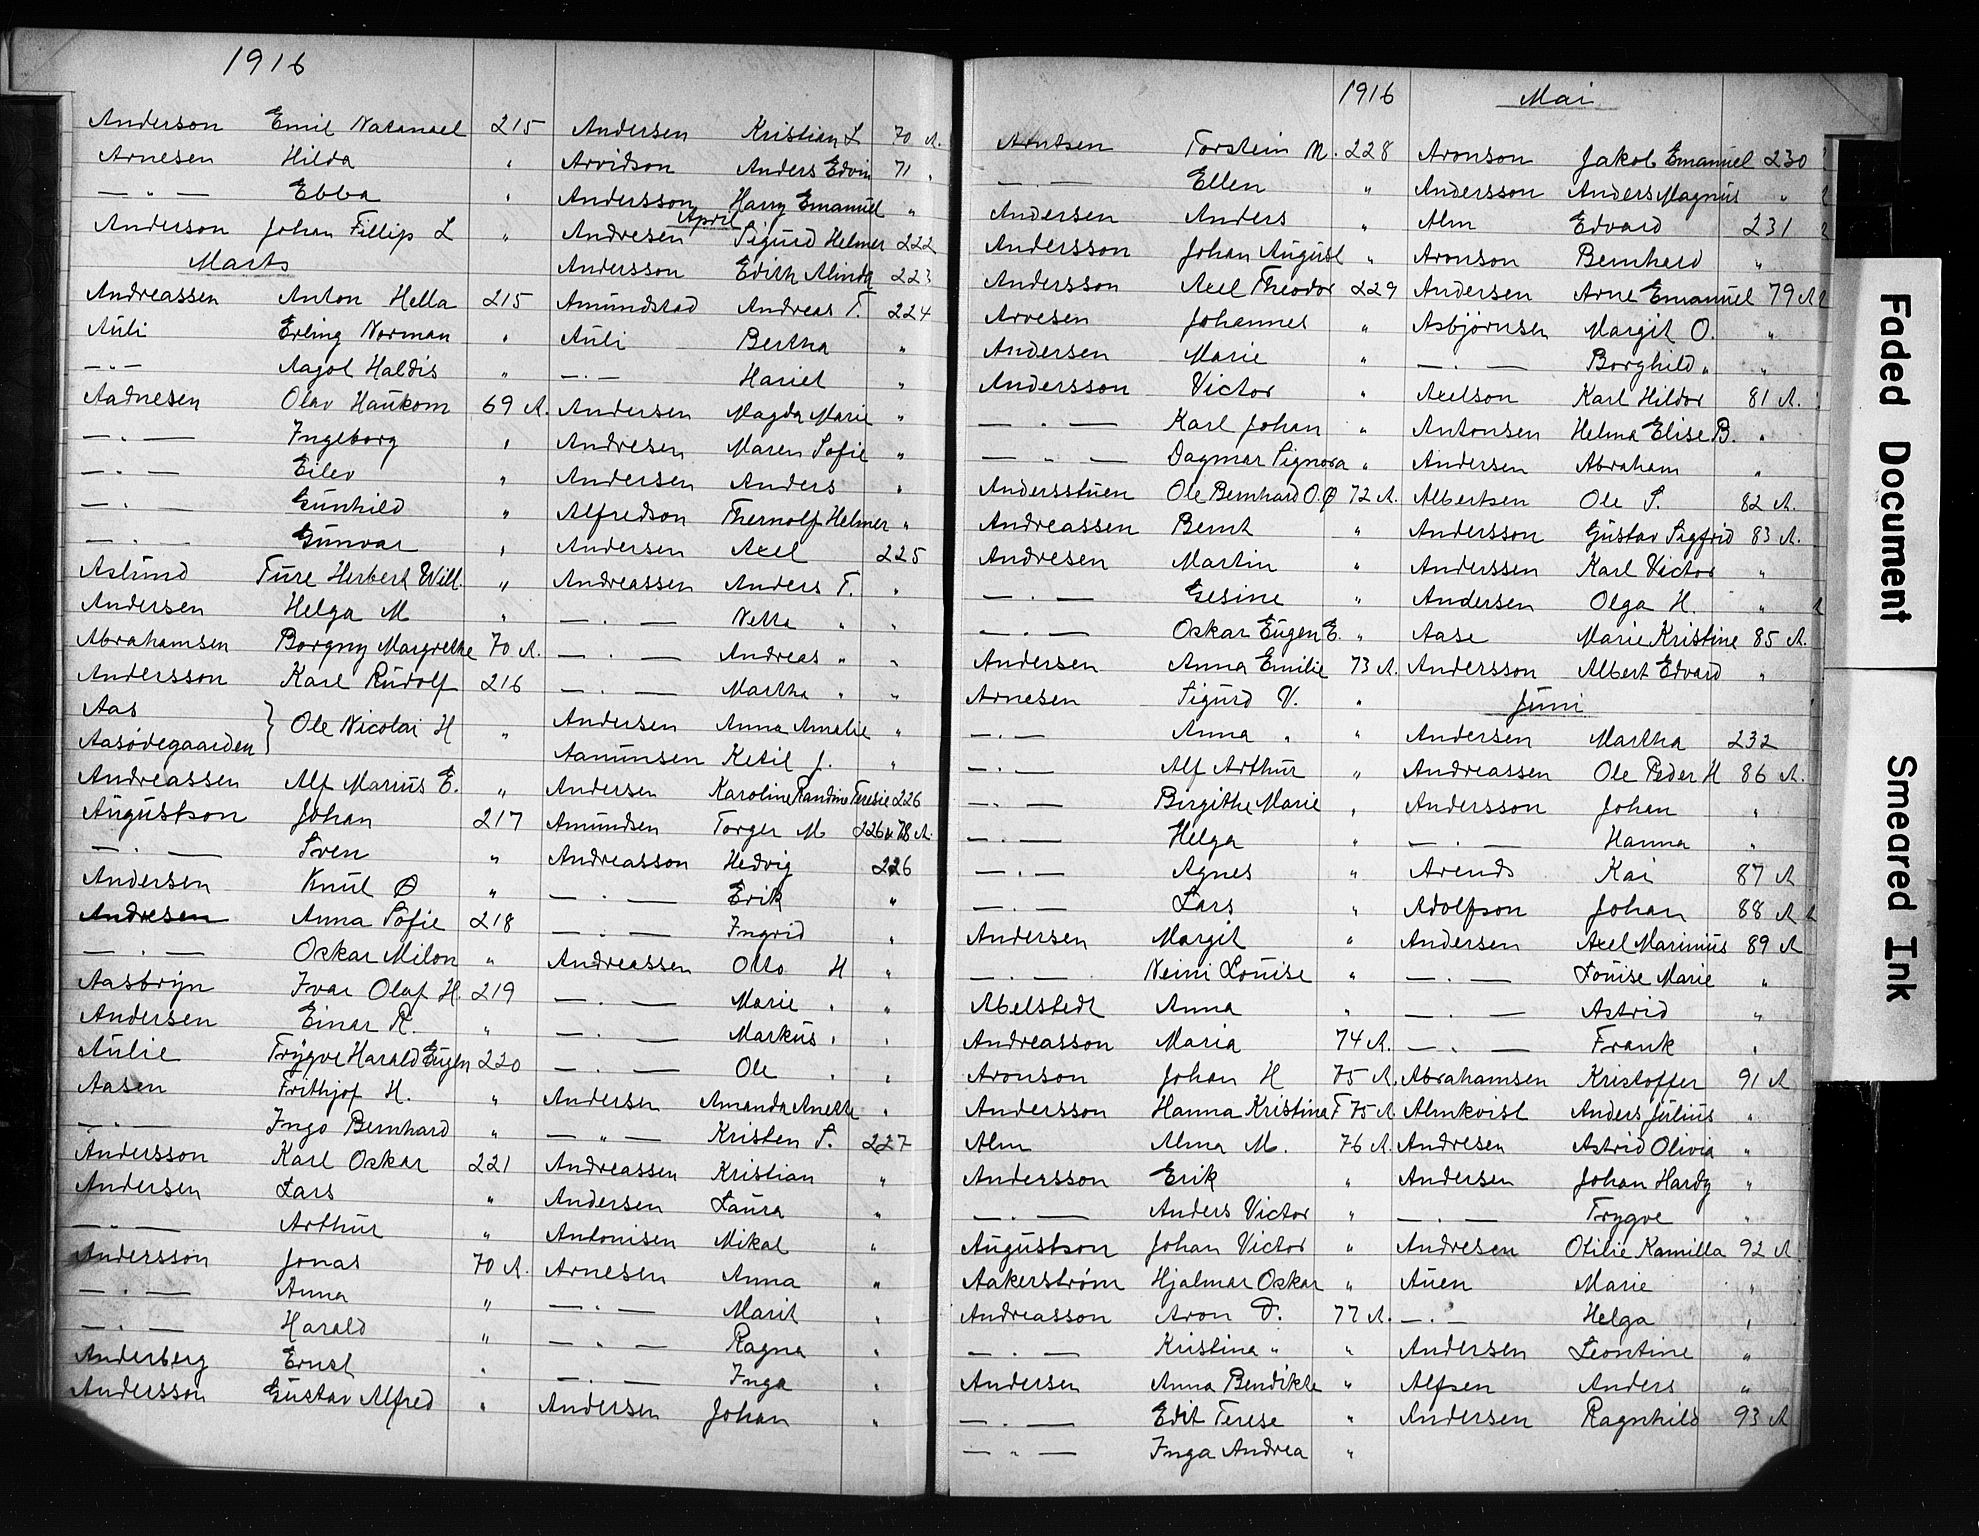 1916
Anderson Emil Natanael 215
Arnesen Hilda "
— " — Ebba "
Anderson Johan Fillip L "
Marts
Andreassen Anton Hella 215
Auli Erling Norman "
— " — Aagot Haldis "
Aadnesen Olav Haukom 69 A.
— " — Ingeborg "
— " — Eilev "
— " — Gunhild "
— " — Gunvar "
Aslund Ture Herbert Will. "
Andersen Helga M "
Abrahamsen Borgny Margrethe 70 A.
Andersson Karl Rudolf 216
Aas
Aasødegaarden } Ole Nicolai H "
Andreassen Alf Marius E. "
Augustson Johan 217
— " — Sven "
Andersen Knut Ø "
Andresen Anna Sofie 218
— " — Oskar Milon "
Aasbryn Ivar Olaf H. 219
Andersen Einar R. "
Aulie Trygve Harald Eugen 220
Aasen Frithjof H. "
— " — Ingo Bernhard "
Andersson Karl Oskar 221
Andersen Lars "
— " — Arthur "
Andersson Jonas 70 A.
— " — Anna "
— " — Harald "
Anderberg Ernst "
Andersson Gustav Alfred "
Andersen Kristian L 70 A.
Arvidson Anders Edvin 71 "
Andersson Harry Emanuel "
April
Andresen Sigurd Helmer 222
Andersson Edith Alinda 223
Amundstad Andreas T. 224
Auli Bertha "
— " — Hariet "
Andersen Magda Marie "
Andresen Maren Sofie "
Andersen Anders "
Alfredson Thernolf Helmer "
Andersen Axel 225
Andreassen Anders T. "
— " — Netta " "
— " — Andreas " "
— " — Martha " "
Andersen Anna Amalie "
Aamunsen Ketil J. "
Andersen Karoline Randine Teresie 226
Amundsen Torger M 226 & 78 A.
Andreasson Hedvig 226
— " — Erik "
— " — Ingrid "
Andreassen Otto H "
— " — Marie " "
— " — Markus " "
— " — Ole " "
Andersen Amanda Anette "
— " — Kristen S. 227
Andreassen Kristian "
Andersen Laura "
Antonisen Mikal "
Arnesen Anna "
— " — Marit "
— " — Ragna "
— " — Inga "
Andersen Johan "
1916 Mai
Arntsen Torstein M. 228
— " — Ellen "
Andersen Anders "
Andersson Johan August "
Andersson Axel Theodor 229
Arvesen Johannes "
Andersen Marie "
Andersson Victor "
— " — Karl Johan "
— " — Dagmar Signora "
Andersstuen Ole Bernhard O. Ø 72 A.
Andreassen Bernt "
Andresen Martin "
— " — Gesine "
— " — Oskar Eugen E. "
Andersen Anna Emilie 73 A.
Arnesen Sigurd V. "
— " — Anna " "
— " — Alf Arthur "
— " — Birgithe Marie "
— " — Helga "
— " — Agnes "
— " — Lars "
Andersen Margit "
— " — Neini Louise "
Abelstedt Anna "
Andreasson Maria 74 A.
Aronson Johan H 75 A.
Andersson Hanna Kristina F 75 A.
Alm Alma M. 76 A.
Andersson Erik "
— " — Anders Victor "
Augustson Johan Victor "
Aakerstrøm Hjalmar Oskar "
Andreasson Aron D. 77 A.
— " — Kristina " "
Andersen Anna Bendikte "
— " — Edit Terese "
— " — Inga Andrea "
Aronson Jakob Emanuel 230
Andersson Anders Magnus "
Alm Edvard 231
Aronson Bernhard "
Andersen Arne Emanuel 79 A
Asbjørnsen Margit O. "
— " — Borghild " "
Axelson Karl Hildor 81 A.
Antonsen Helma Elise B. "
Andersen Abraham "
Albertsen Ole S. 82 A.
Andersson Gustav Sigfrid 83 A.
Anderssen Karl Victor "
Andersen Olga H. "
Aase Marie Kristine 85 A.
Andersson Albert Edvard "
Juni
Andersen Martha 232
Andreassen Ole Peder H 86 A.
Andersson Johan "
— " — Hanna "
Arends Kai 87 A
Adolfson Johan 88 A
Andersen Axel Marinius 89 A
— " — Louise Marie "
— " — Astrid "
— " — Frank "
Abrahamsen Kristoffer 91 A
Almkvist Anders Julius "
Andresen Astrid Olivia "
Andersen Johan Hardy "
— " — Trygve "
Andresen Otilie Kamilla 92 A
Auen Marie "
— " — Helga "
Andersen Leontine "
Alfsen Anders "
Andersen Ragnhild 93 A
Faded Document
Smeared Ink